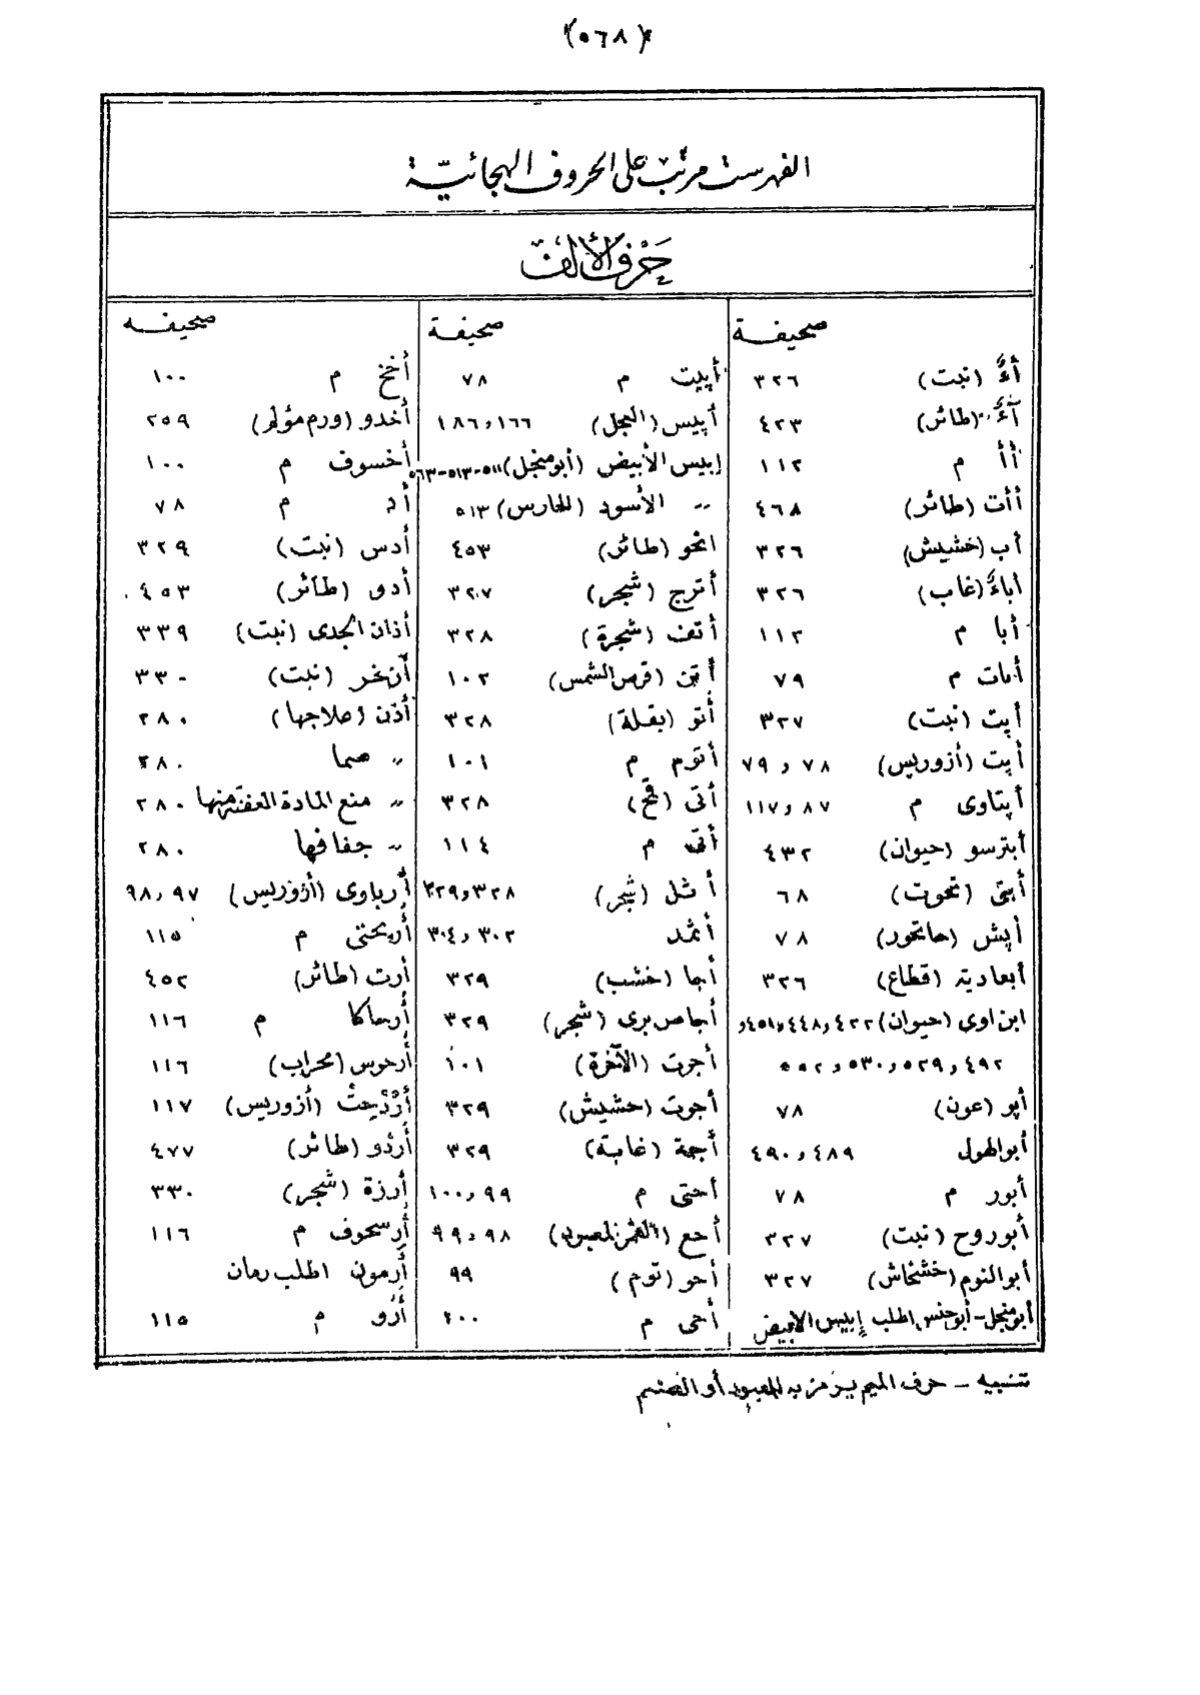 (٥٦٨)
الفهرست مرتب على الحروف الهجائية
حرف الألف
صحيفة
أءٌ (نبت) ٣٢٦
آءٌ (طائر) ٤٢٣
أأ م ١١٢
أأت (طائر) ٤٦٨
أب (خشيش) ٣٢٦
أباءٌ (غاب) ٣٢٦
أبا م ١١٢
أبات م ٧٩
أبت (نبت) ٣٢٧
أبت (أزوريس) ٧٨ و ٧٩
أبتاوى م ٨٧ و ١١٧
أبترسو (حيوان) ٤٣٢
أبتى (تحوت) ٦٨
أبش (حاتحور) ٧٨
أبعادية (قطاع) ٣٢٦
ابن اوى (حيوان) ٤٢٢ و ٤٤٨ و ٤٥١ و
٤٩٢ و ٥٢٩ و ٥٣٠ و ٥٥٢
أبو (عون) ٧٨
أبوالهول ٤٨٩ و ٤٩٠
أبور م ٧٨
أبوروح (نبت) ٣٢٧
أبوالنوم (خشخاش) ٣٢٧
أبو منجل - أبو حنس اطلب إبيس الابيض
صحيفة
أبيت م ٧٨
أبيس (العجل) ١٦٦ و ١٨٦
إبيس الأبيض (أبو منجل) ٥١١-٥١٣-٥٦٣
〃 الأسود (الحارس) ٥١٣
اتحو (طائر) ٤٥٣
أترج (شجر) ٣٢٧
أتف (شجرة) ٣٢٨
أتن (قرص الشمس) ١٠٢
أتو (بقلة) ٣٢٨
أتوم م ١٠١
أتى (قمح) ٣٢٨
أتى م ١١٤
أثل (شجر) ٣٢٨ و ٣٢٩
أثمد ٣٠٢ و ٣٠٤
أجا (خشب) ٣٢٩
أجاص برى (شجر) ٣٢٩
أجرت (الآخرة) ١٠١
أجوت (حشيش) ٣٢٩
أجمة (غابة) ٣٢٩
أحتى م ٩٩ و ١٠٠
أحع (القمر المعبود) ٩٨ و ٩٩
أحو (توم) ٩٩
أحى م ٤٠٠
صحيفه
أخخ م ١٠٠
أخدو (ورم مؤلم) ٢٥٩
أخسوف م ١٠٠
أد م ٧٨
أدس (نبت) ٣٢٩
أدو (طائر) ٤٥٣
أذان الجدى (نبت) ٣٣٩
أذخر (نبت) ٣٣٠
أذن (علاجها) ٢٨٠
〃 صما ٢٨٠
〃 منع المادة العفنة منها ٢٨٠
〃 جفافها ٢٨٠
أرباوى (أزوريس) ٩٧ و ٩٨
أربحتى م ١١٥
أرت (طائر) ٤٥٢
أرحاكا م ١١٦
أرحوس (محراب) ١١٦
(أزوريس) ١١٧
أردو (طائر) ٤٧٧
أرزة (شجر) ٣٣٠
أرسحوف م ١١٦
أرمون اطلب رمان
أرو م ١١٥
تنبيه - حرف الميم يرمز به للمعبود أو الصنم